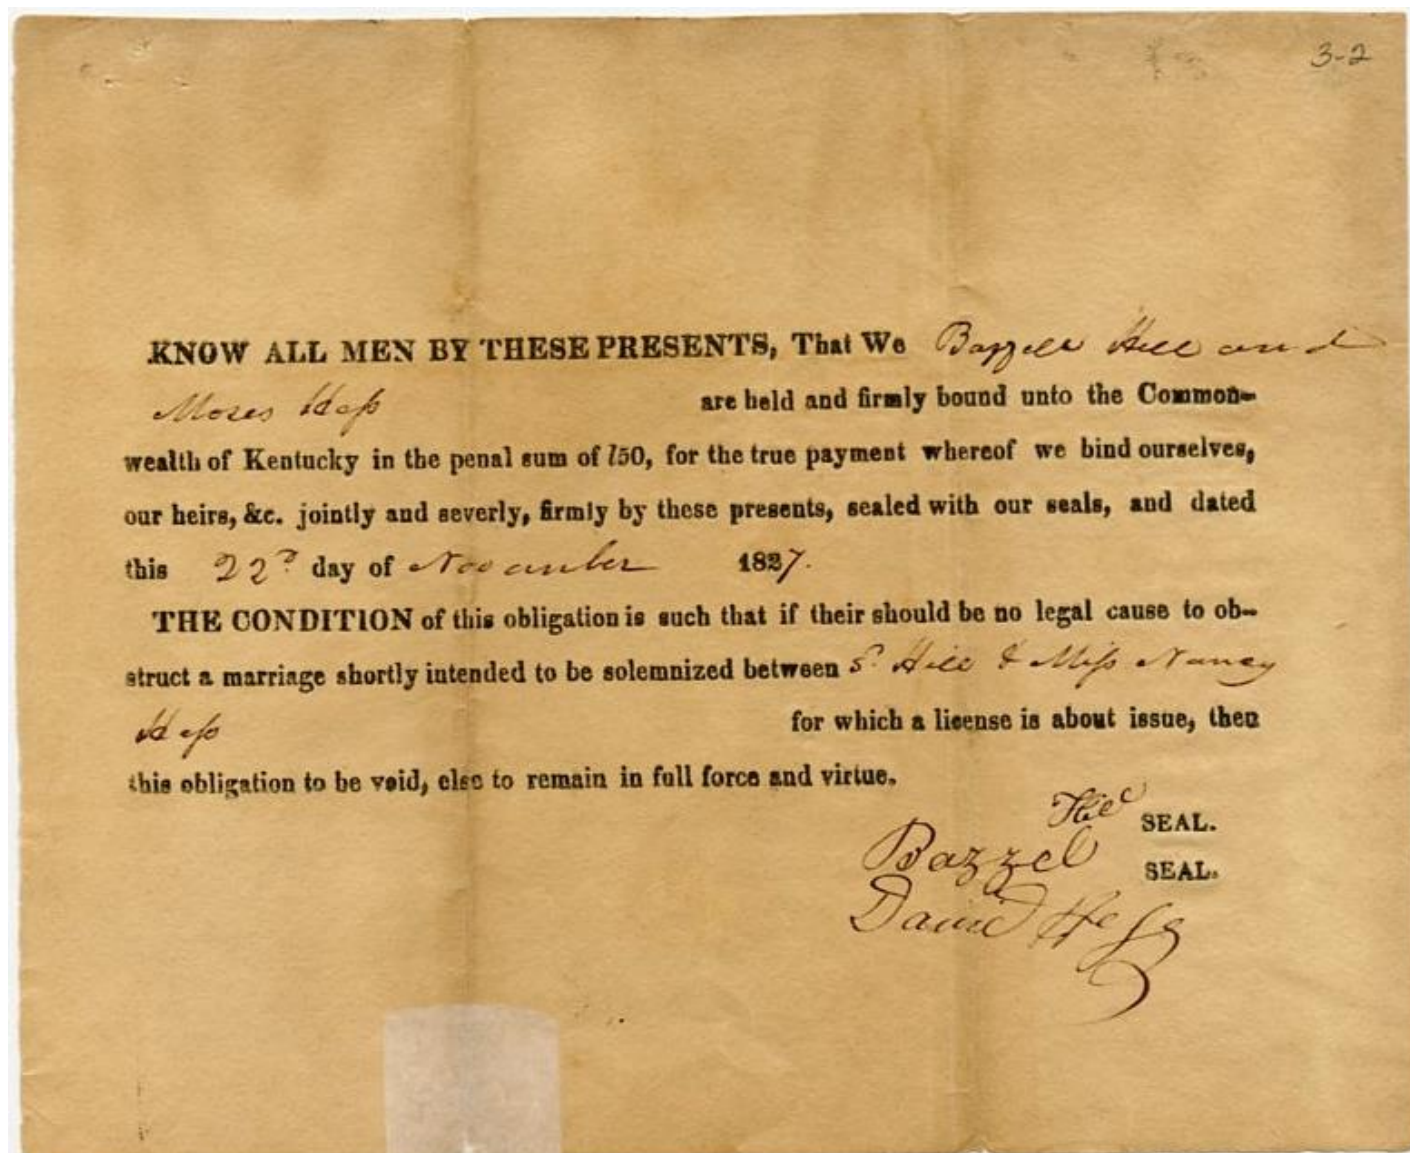 3-2
KNOW ALL MEN BY THESE PRESENTS, That We Bazzell Hill and
Moses Hess are held and firmly bound unto the Common-
wealth of Kentucky in the penal sum of l50, for the true payment whereof we bind ourselves,
our heirs, &c. jointly and severly, firmly by these presents, sealed with our seals, and dated
this 22d day of November 1827.
THE CONDITION of this obligation is such that if their should be no legal cause to ob-
struct a marriage shortly intended to be solemnized between Sd. Hill & Miss Nancy
Hess for which a license is about issue, then
this obligation to be void, else to remain in full force and virtue.
Hill SEAL.
Bazzel SEAL.
David Hess